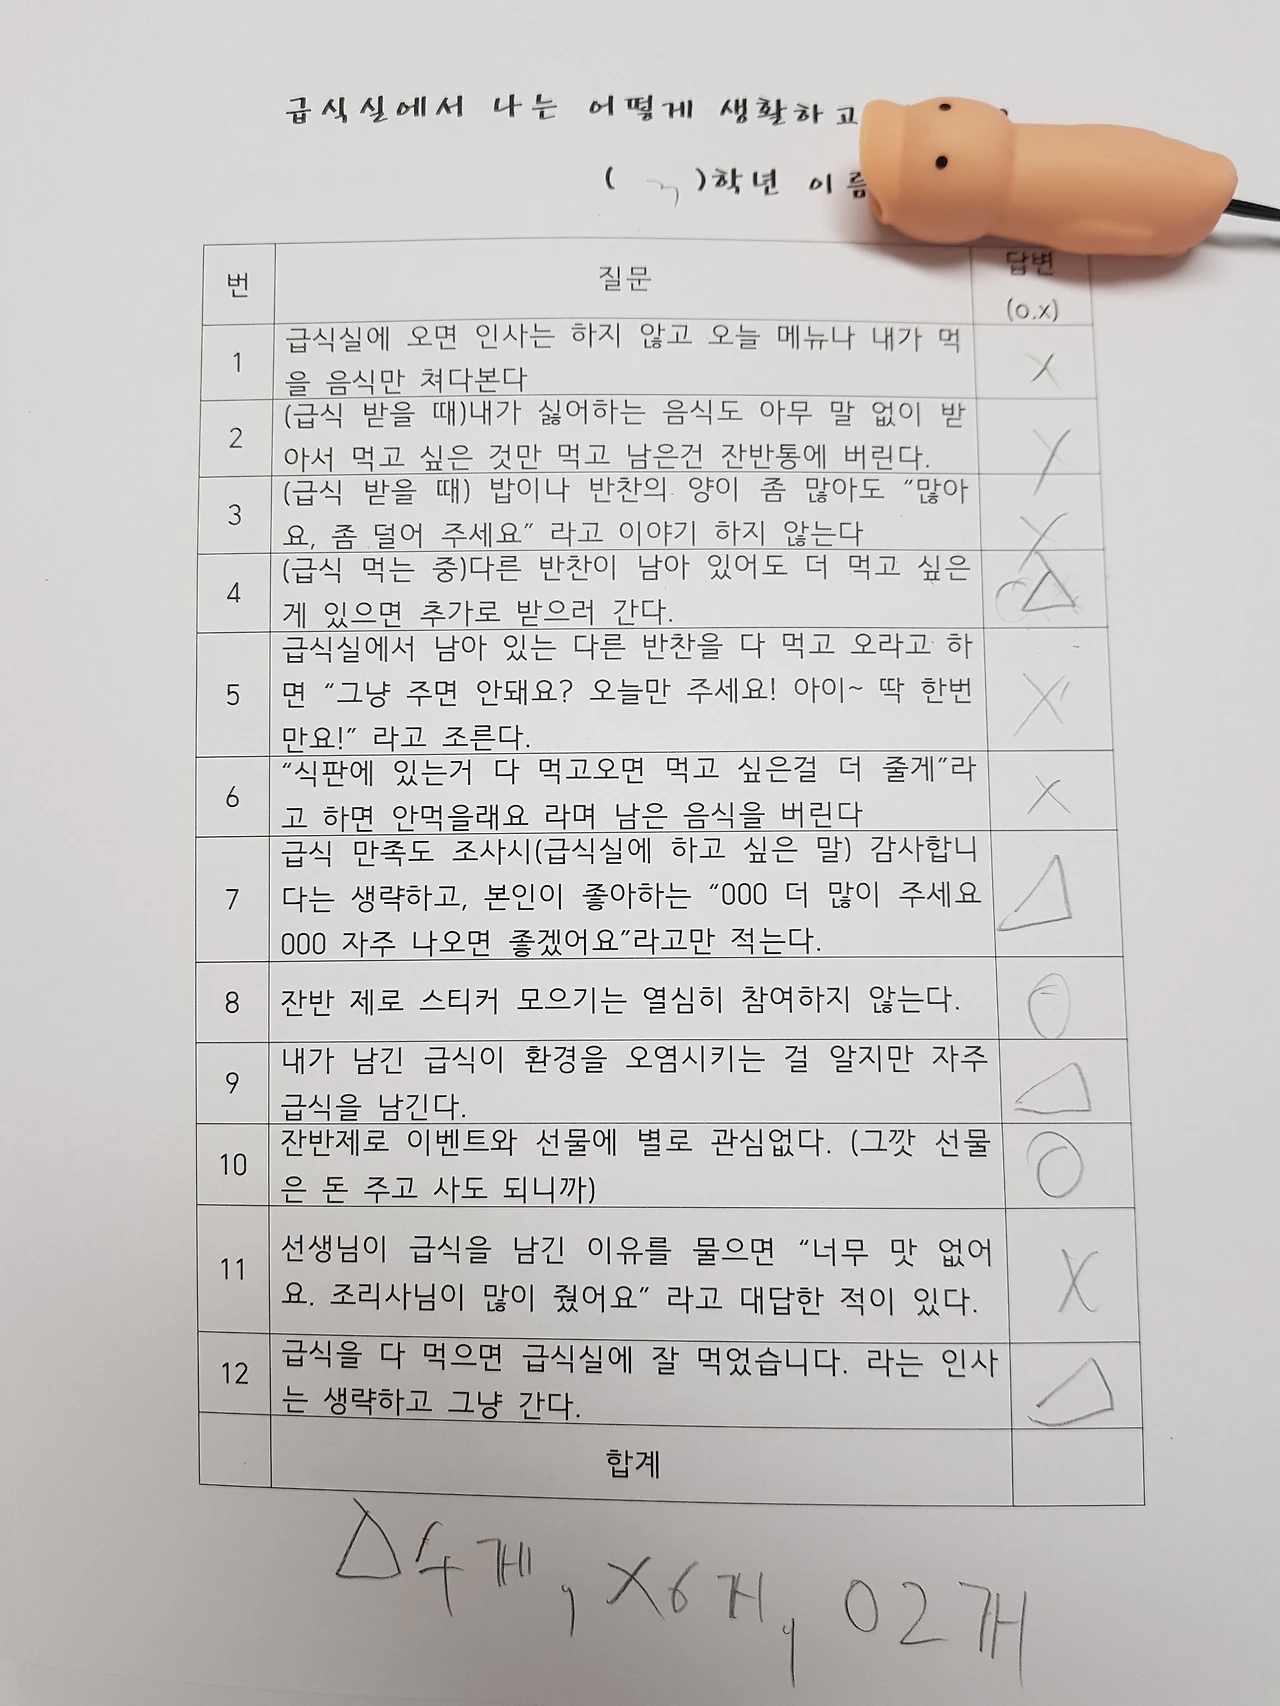 급식실에서 나는 어떻게 생활하고
( 3 )학년 이름
번 질문 답변
(o.x)
1 급식실에 오면 인사는 하지 않고 오늘 메뉴나 내가 먹
을 음식만 쳐다본다 X
2 (급식 받을 때)내가 싫어하는 음식도 아무 말 없이 받
아서 먹고 싶은 것만 먹고 남은건 잔반통에 버린다. X
3 (급식 받을 때) 밥이나 반찬의 양이 좀 많아도 “많아
요, 좀 덜어 주세요” 라고 이야기 하지 않는다 X
4 (급식 먹는 중)다른 반찬이 남아 있어도 더 먹고 싶은
게 있으면 추가로 받으러 간다. △
5 급식실에서 남아 있는 다른 반찬을 다 먹고 오라고 하
면 “그냥 주면 안돼요? 오늘만 주세요! 아이~ 딱 한번
만요!” 라고 조른다. X
6 “식판에 있는거 다 먹고오면 먹고 싶은걸 더 줄게”라
고 하면 안먹을래요 라며 남은 음식을 버린다 X
7 급식 만족도 조사시(급식실에 하고 싶은 말) 감사합니
다는 생략하고, 본인이 좋아하는 “000 더 많이 주세요
000 자주 나오면 좋겠어요”라고만 적는다. △
8 잔반 제로 스티커 모으기는 열심히 참여하지 않는다. O
9 내가 남긴 급식이 환경을 오염시키는 걸 알지만 자주
급식을 남긴다. △
10 잔반제로 이벤트와 선물에 별로 관심없다. (그깟 선물
은 돈 주고 사도 되니까) O
11 선생님이 급식을 남긴 이유를 물으면 “너무 맛 없어
요. 조리사님이 많이 줬어요” 라고 대답한 적이 있다. X
12 급식을 다 먹으면 급식실에 잘 먹었습니다. 라는 인사
는 생략하고 그냥 간다. △
합계
△4개, X6개, O2개